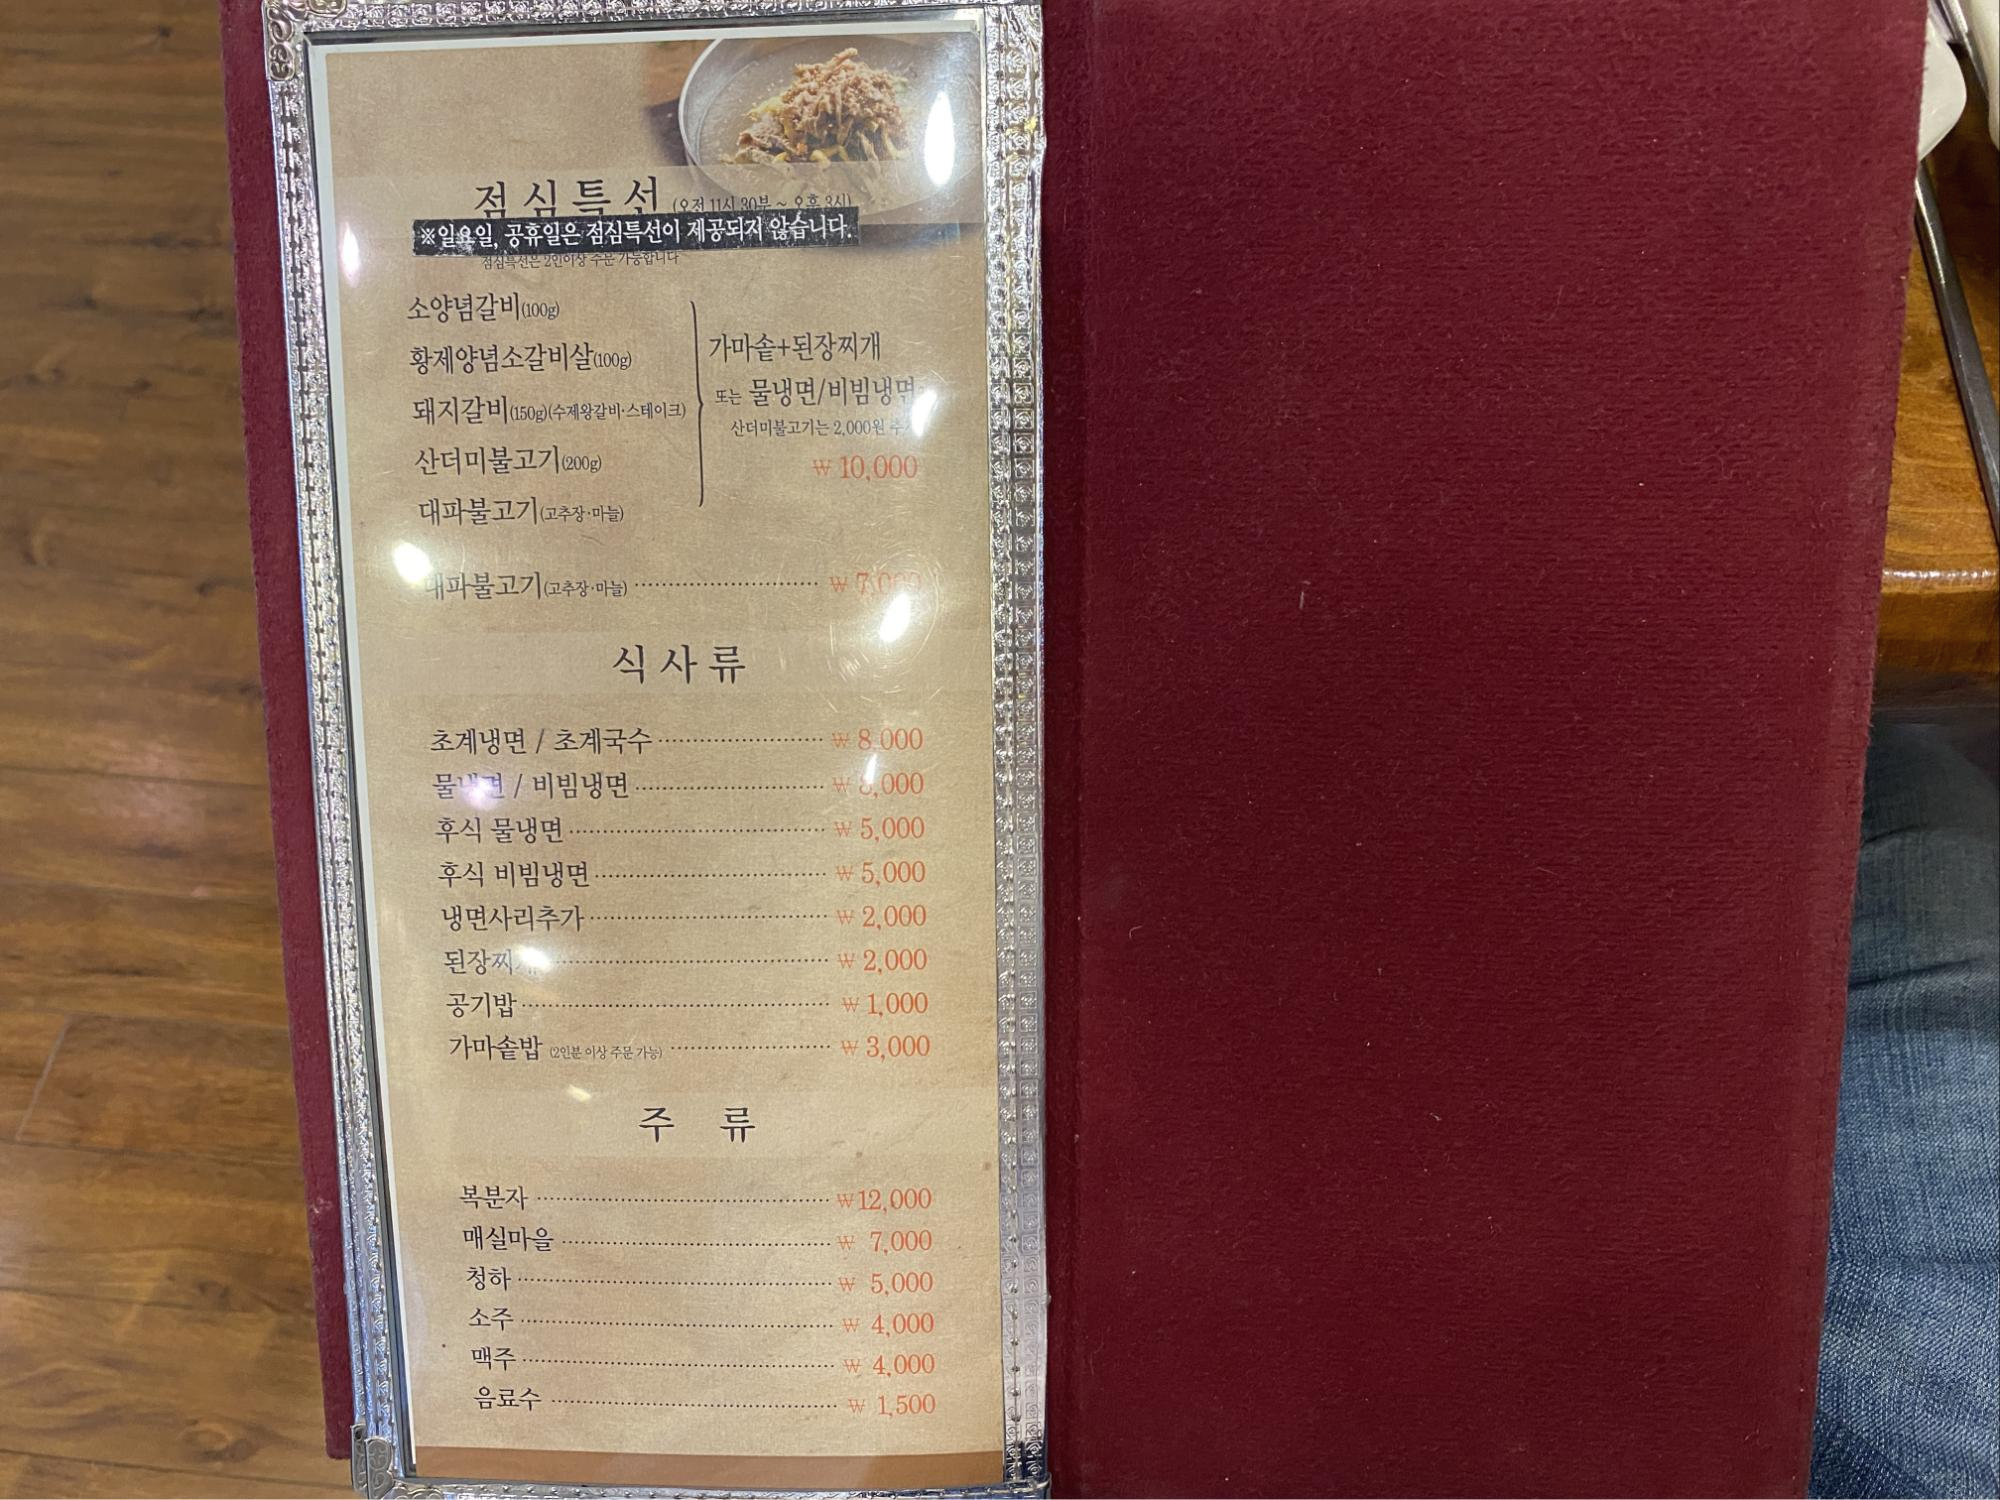 점심특선 (오전 11시 30분 ~ 오후 3시)
※일요일, 공휴일은 점심특선이 제공되지 않습니다.
점심특선은 2인이상 주문 가능합니다
소양념갈비(100g)
황제양념소갈비살(100g)
돼지갈비(150g)(수제왕갈비·스테이크)
산더미불고기(200g)
대파불고기(고추장·마늘)
가마솥+된장찌개
또는 물냉면/비빔냉면
산더미불고기는 2,000원 추가
₩ 10,000
대파불고기(고추장·마늘) ₩ 7,000
식사류
초계냉면 / 초계국수 ₩ 8,000
물냉면 / 비빔냉면 ₩
후식 물냉면 ₩ 5,000
후식 비빔냉면 ₩ 5,000
냉면사리추가 ₩ 2,000
된장찌개 ₩ 2,000
공기밥 ₩ 1,000
가마솥밥 (2인분 이상 주문 가능) ₩ 3,000
주 류
복분자 ₩12,000
매실마을 ₩ 7,000
청하 ₩ 5,000
소주 ₩ 4,000
맥주 ₩ 4,000
음료수 ₩ 1,500